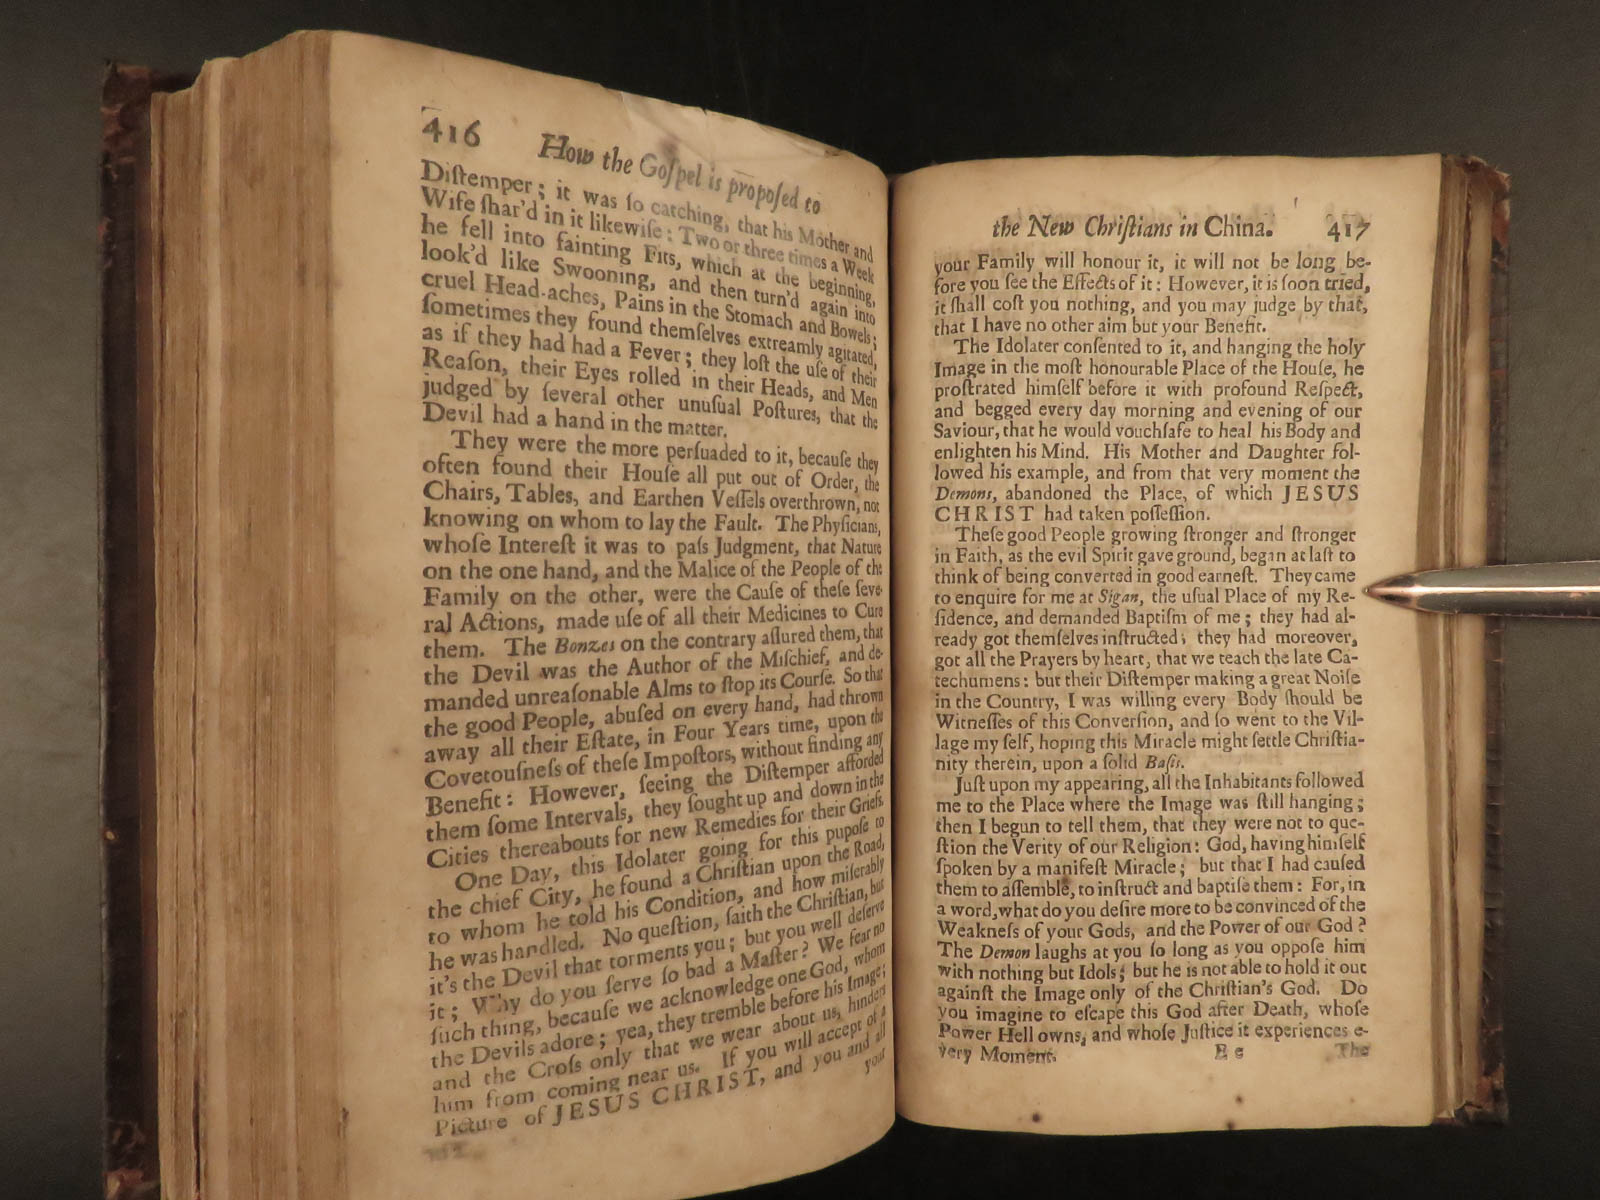 416 How the Goſpel is propoſed to
Diſtemper; it was ſo catching, that his Mother and
Wife ſhar'd in it likewiſe: Two or three times a Week
he fell into fainting Fits, which at the beginning,
look'd like Swooning, and then turn'd again into
cruel Head-aches, Pains in the Stomach and Bowels;
ſometimes they found themſelves extreamly agitated,
as if they had had a Fever; they loſt the uſe of their
Reaſon, their Eyes rolled in their Heads, and Men
judged by ſeveral other unuſual Poſtures, that the
Devil had a hand in the matter.
They were the more perſuaded to it, becauſe they
often found their Houſe all put out of Order, the
Chairs, Tables, and Earthen Veſſels overthrown, not
knowing on whom to lay the Fault. The Phyſicians,
whoſe Intereſt it was to paſs Judgment, that Nature
on the one hand, and the Malice of the People of the
Family on the other, were the Cauſe of theſe ſeve-
ral Actions, made uſe of all their Medicines to Cure
them. The Bonzes on the contrary aſſured them, that
the Devil was the Author of the Miſchief, and de-
manded unreaſonable Alms to ſtop its Courſe. So that
the good People, abuſed on every hand, had thrown
away all their Eſtate, in Four Years time, upon the
Covetouſneſs of theſe Impoſtors, without finding any
Benefit: However, ſeeing the Diſtemper afforded
them ſome Intervals, they ſought up and down in the
Cities thereabouts for new Remedies for their Griefs.
One Day, this Idolater going for this pupoſe to
the chief City, he found a Chriſtian upon the Road,
to whom he told his Condition, and how miſerably
he was handled. No queſtion, ſaith the Chriſtian, but
it's the Devil that torments you; but you well deſerve
it; Why do you ſerve ſo bad a Maſter? We fear no
ſuch thing, becauſe we acknowledge one God, whom
the Devils adore; yea, they tremble before his Image;
and the Croſs only that we wear about us, hinders
him from coming near us. If you will accept of a
Picture of JESUS CHRIST, and you and all
your
the New Chriſtians in China. 417
your Family will honour it, it will not be long be-
fore you ſee the Effects of it: However, it is ſoon tried,
it ſhall coſt you nothing, and you may judge by that,
that I have no other aim but your Benefit.
The Idolater conſented to it, and hanging the holy
Image in the moſt honourable Place of the Houſe, he
proſtrated himſelf before it with profound Reſpect,
and begged every day morning and evening of our
Saviour, that he would vouchſafe to heal his Body and
enlighten his Mind. His Mother and Daughter fol-
lowed his example, and from that very moment the
Demons, abandoned the Place, of which JESUS
CHRIST had taken poſſeſſion.
Theſe good People growing ſtronger and ſtronger
in Faith, as the evil Spirit gave ground, began at laſt to
think of being converted in good earneſt. They came
to enquire for me at Sigan, the uſual Place of my Re-
ſidence, and demanded Baptiſm of me; they had al-
ready got themſelves inſtructed; they had moreover,
got all the Prayers by heart, that we teach the late Ca-
techumens: but their Diſtemper making a great Noiſe
in the Country, I was willing every Body ſhould be
Witneſſes of this Converſion, and ſo went to the Vil-
lage my ſelf, hoping this Miracle might ſettle Chriſtia-
nity therein, upon a ſolid Baſis.
Juſt upon my appearing, all the Inhabitants followed
me to the Place where the Image was ſtill hanging;
then I begun to tell them, that they were not to que-
ſtion the Verity of our Religion: God, having himſelf
ſpoken by a manifeſt Miracle; but that I had cauſed
them to aſſemble, to inſtruct and baptiſe them: For, in
a word, what do you deſire more to be convinced of the
Weakneſs of your Gods, and the Power of our God?
The Demon laughs at you ſo long as you oppoſe him
with nothing but Idols; but he is not able to hold it out
againſt the Image only of the Chriſtian's God. Do
you imagine to eſcape this God after Death, whoſe
Power Hell owns, and whoſe Juſtice it experiences e-
very Moment.
E e The